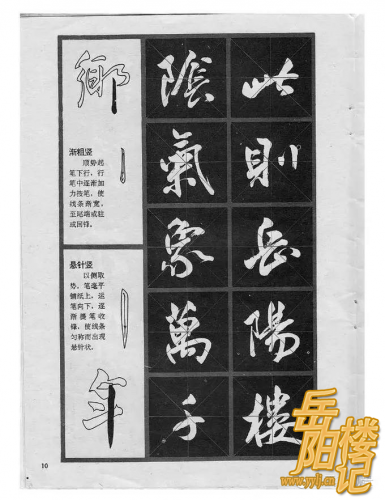 此則岳陽樓
陰氣象萬千
鄉
渐粗竖
顺势起
笔下行,行
笔中逐渐加
力按笔,使
线条渐宽,
至尾端或驻
或回锋。
悬针竖
以侧取
势,笔毫平
铺纸上,运
笔向下,逐
渐提笔收
锋,使线条
匀称而出现
悬针状。
年
10
岳阳楼记
www.yylj.cn